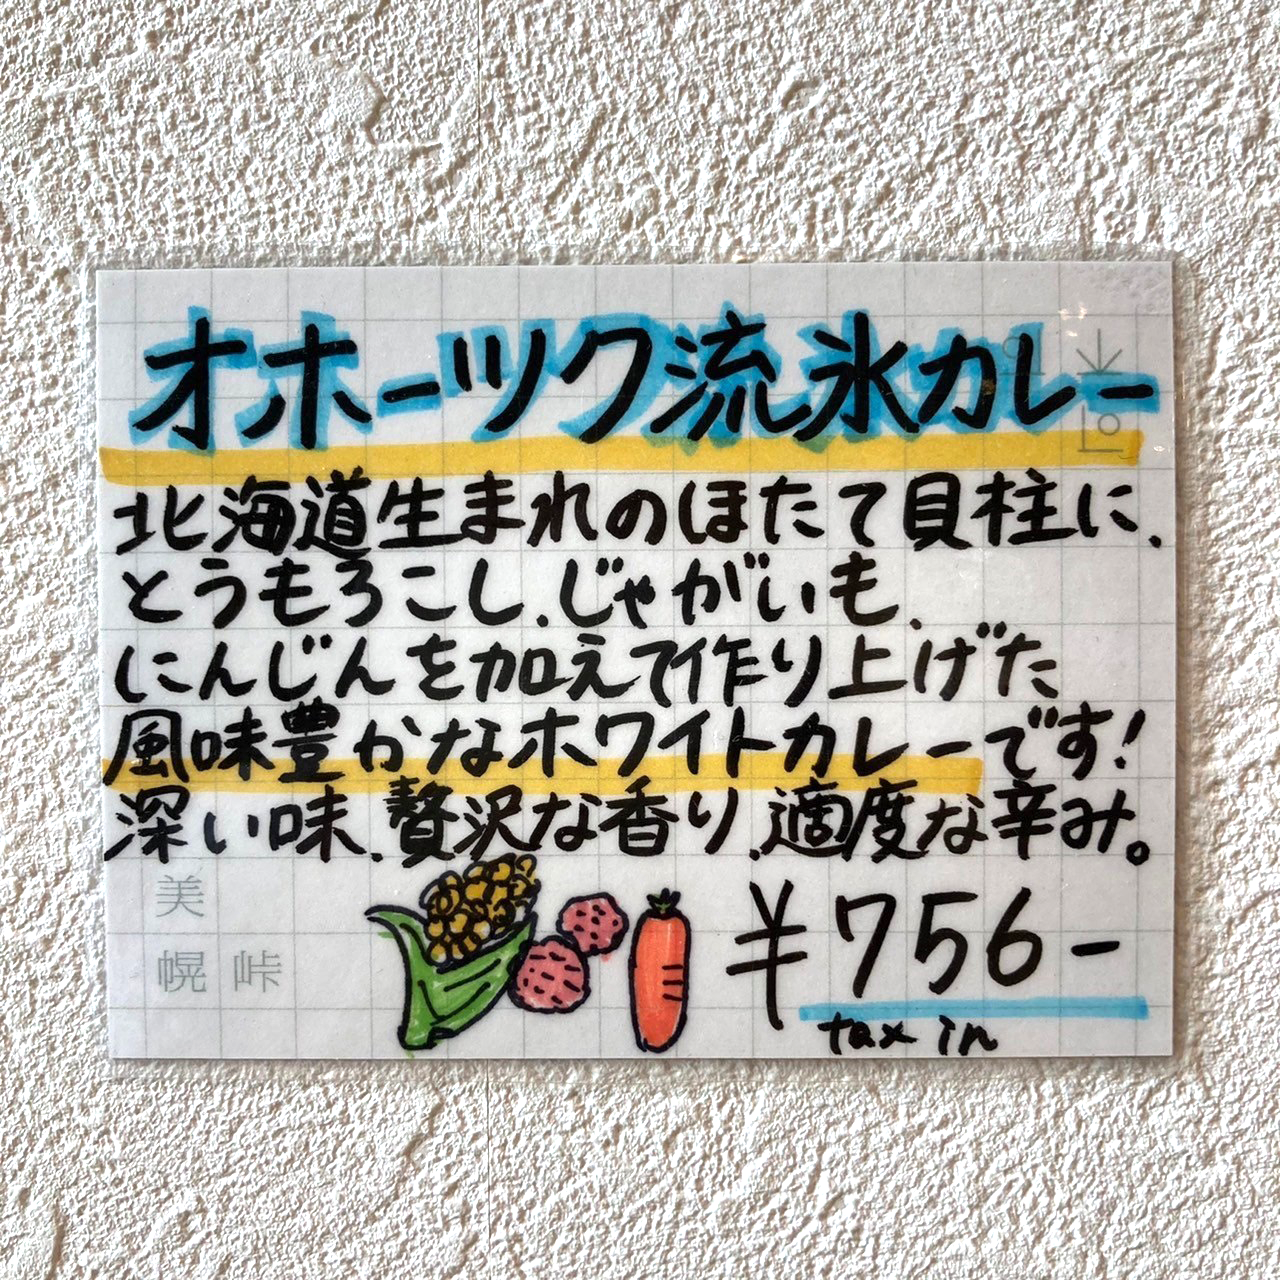 オホーツク流氷カレー
北海道生まれのほたて貝柱に、
とうもろこし、じゃがいも、
にんじんを加えて作り上げた
風味豊かなホワイトカレーです!
深い味、贅沢な香り、適度な辛み。
美
幌 峠
¥756-
tax in